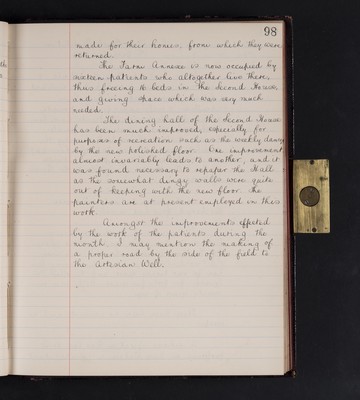 98
made for their homes, from which they were
returned.
The Farm Annexe is now occupied by
sixteen patients who altogether live there,
thus freeing 16 beds in the Second House
and giving space which was very much
needed.
The dining hall of the Second House
has been much improved, especially for
purposes of recreation such as the weekly dance
by the new polished floor. One improvement
almost invariably leads to another, and it
was found necessary to repaper the Hall
as the somewhat dingy walls were quite
out of keeping with the new floor. The
painters are at present employed in this
work.
Amongst the improvements effected
by the work of the patients during the
month I may mention the making of
a proper road by the side of the field to
the Artesian Well.